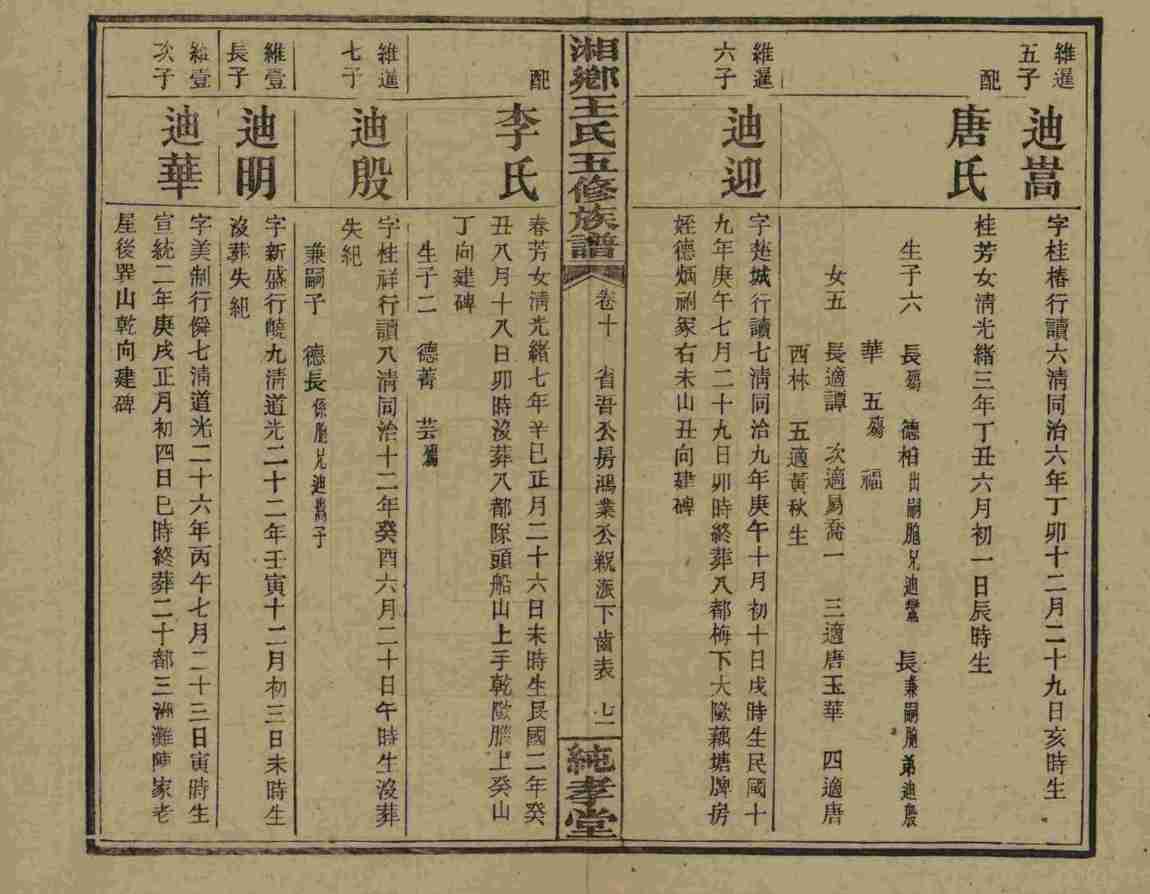 維暹
五子
迪嵩
字桂椿行讀六淸同治六年丁卯十二月二十九日亥時生
配
唐氏
桂芳女淸光緒三年丁丑六月初一日辰時生
生子六 長殤 德柏出嗣胞兄迪鸞 長兼嗣胞弟迪殷
華 五殤 福
女五 長適譚 次適易喬一 三適唐玉華 四適唐
西林 五適黃秋生
維暹
六子
迪迎
字楚城行讀七淸同治九年庚午十月初十日戌時生民國十
九年庚午七月二十九日卯時終葬八都梅下大隴藕塘牌房
姪德炳祔冢右未山丑向建碑
湘鄉王氏五修族譜
卷十 省吾公房鴻業公派下齒表 七一
純孝堂
配
李氏
春芳女淸光緒七年辛巳正月二十六日未時生民國二年癸
丑八月十八日卯時沒葬八都隊頭船山上手乾隴騰上癸山
丁向建碑
生子二 德菁 芸殤
維暹
七子
迪殷
字桂祥行讀八淸同治十二年癸酉六月二十日午時生沒葬
失紀
兼嗣子 德長係胞兄迪嵩子
維壹
長子
迪明
字新盛行皢九淸道光二十二年壬寅十二月初三日未時生
沒葬失紀
維壹
次子
迪華
字美制行僢七淸道光二十六年丙午七月二十三日寅時生
宣統二年庚戌正月初四日巳時終葬二十都三洲灘陳家老
屋後巽山乾向建碑